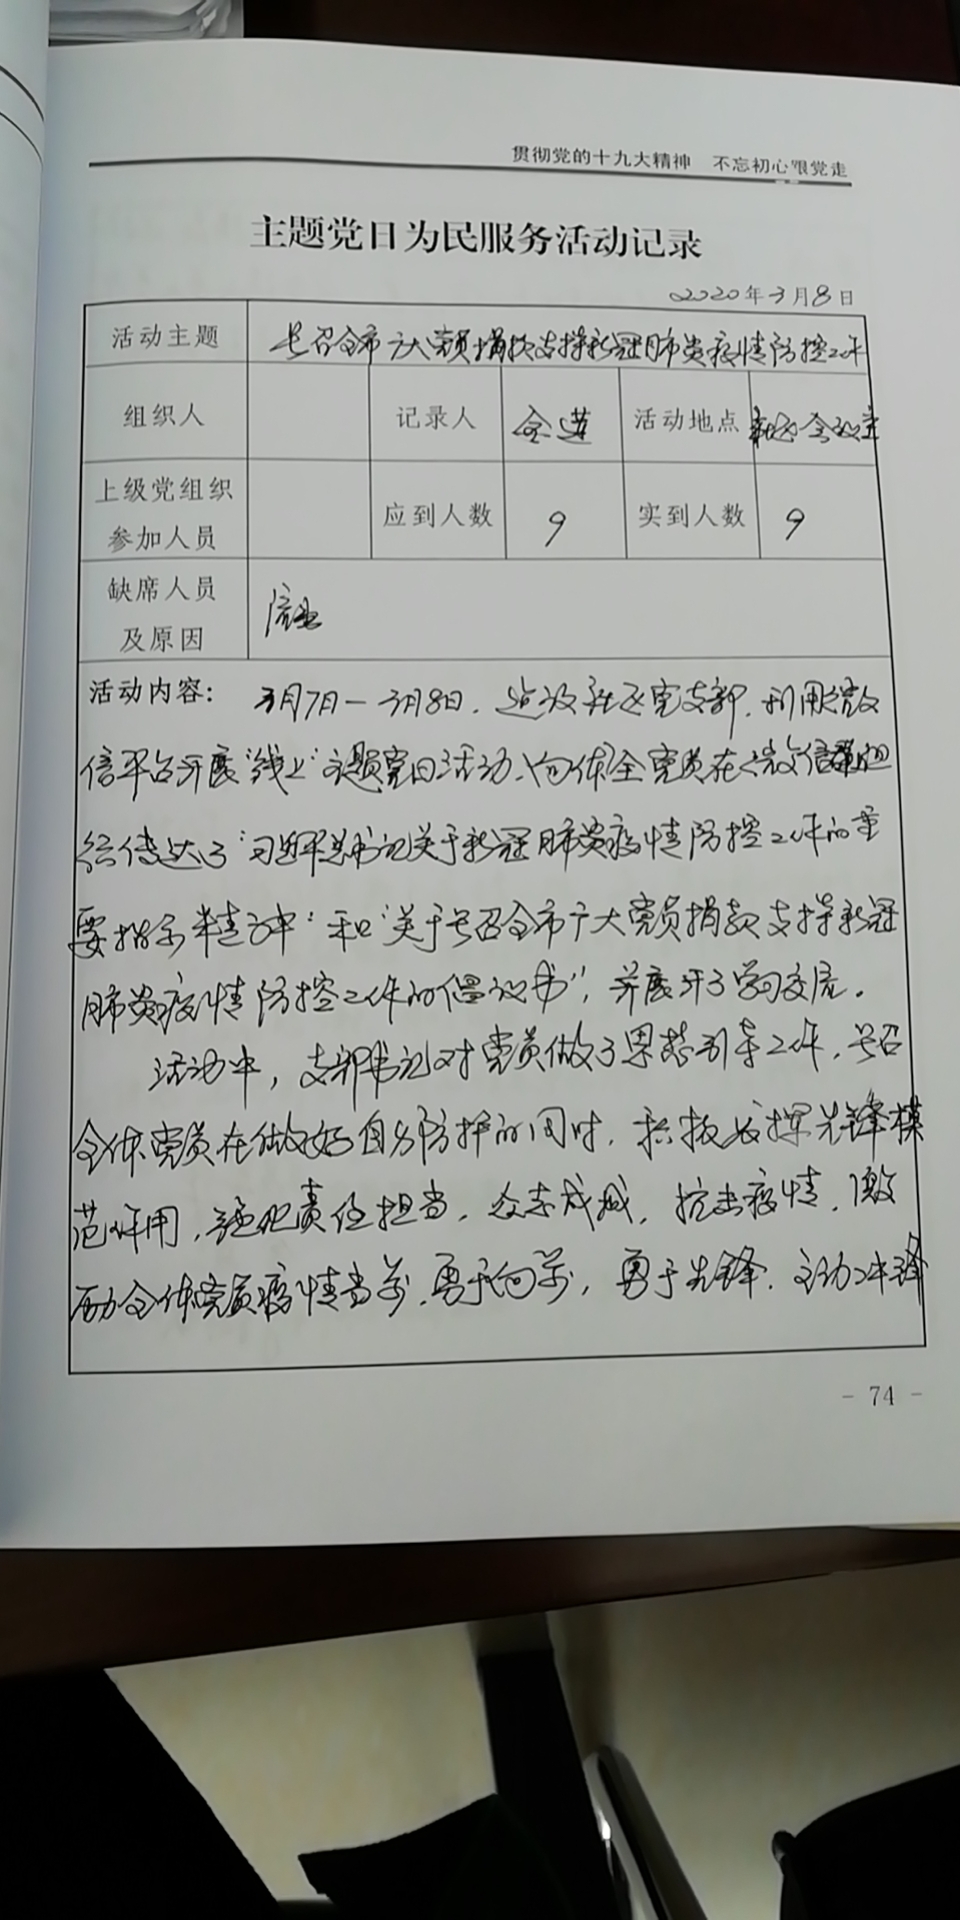 贯彻党的十九大精神 不忘初心跟党走
主题党日为民服务活动记录
2020年3月8日
活动主题 号召全市广大党员捐款支持新冠肺炎疫情防控工作
组织人 记录人 活动地点 社区会议室
上级党组织
参加人员 应到人数 9 实到人数 9
缺席人员
及原因
活动内容： 3月7日—3月8日，社区党支部，利用微
信平台开展“线上”主题党日活动、向体全党员在微信群
传达了“习近平总书记关于新冠肺炎疫情防控工作的重
要指示精神”和“关于号召全市广大党员捐款支持新冠
肺炎疫情防控工作的倡议书”，并展开了学习交流。
活动中，支部书记对党员做了思想引导工作，号召
全体党员在做好自身防护的同时，积极发挥先锋模
范作用，强化责任担当，众志成城，抗击疫情，激
励全体党员疫情当前，勇于向前，勇于先锋，主动冲锋
- 74 -